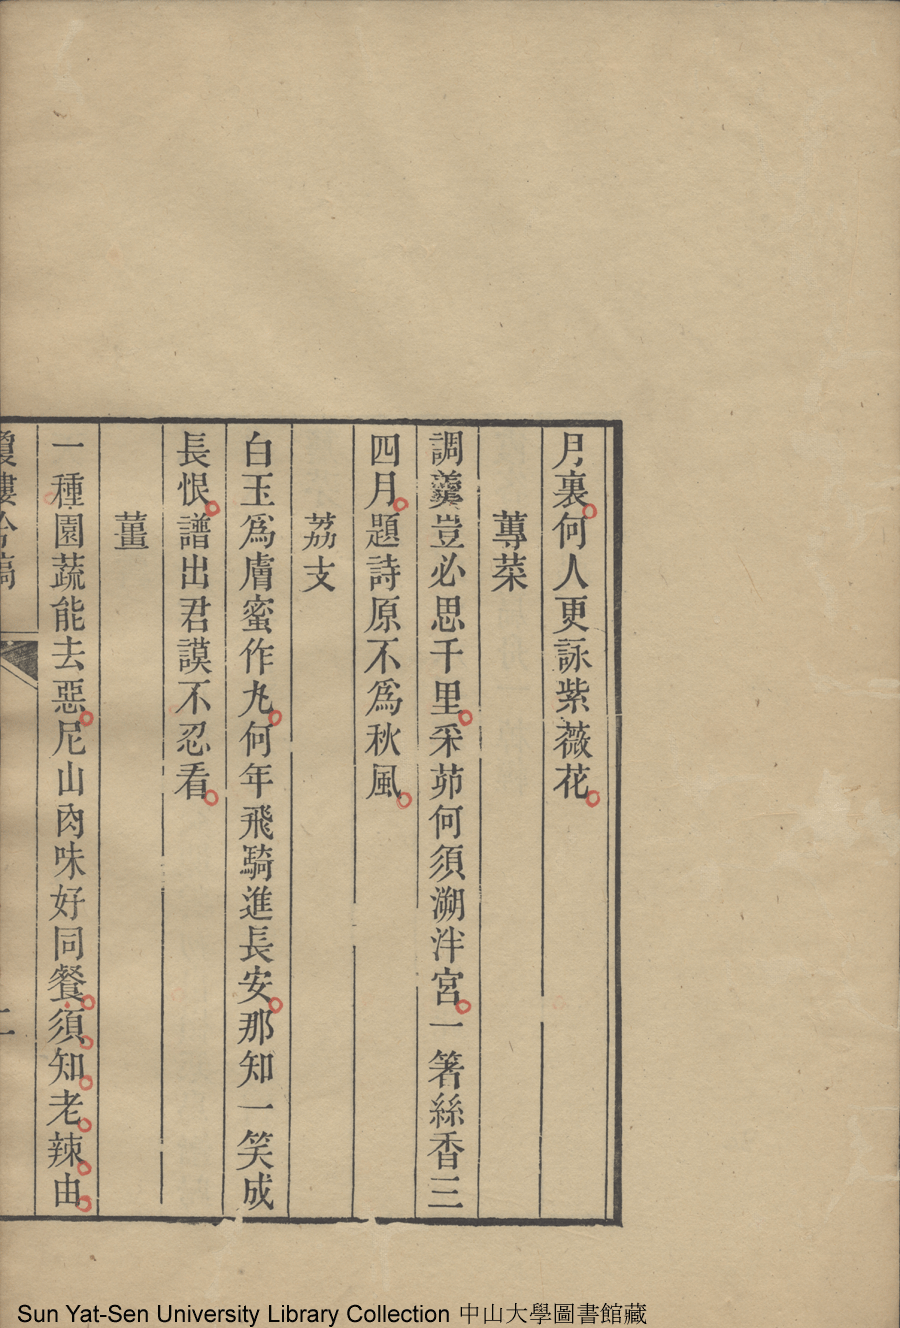 月裏何人更詠紫薇花
蓴菜
調羹豈必思千里采茆何須溯泮宮一箸絲香三
四月題詩原不爲秋風
荔支
白玉爲膚蜜作丸何年飛騎進長安那知一笑成
長恨譜出君謨不忍看
薑
一種園蔬能去惡尼山肉味好同餐須知老辣由
Sun Yat-Sen University Library Collection 中山大學圖書館藏